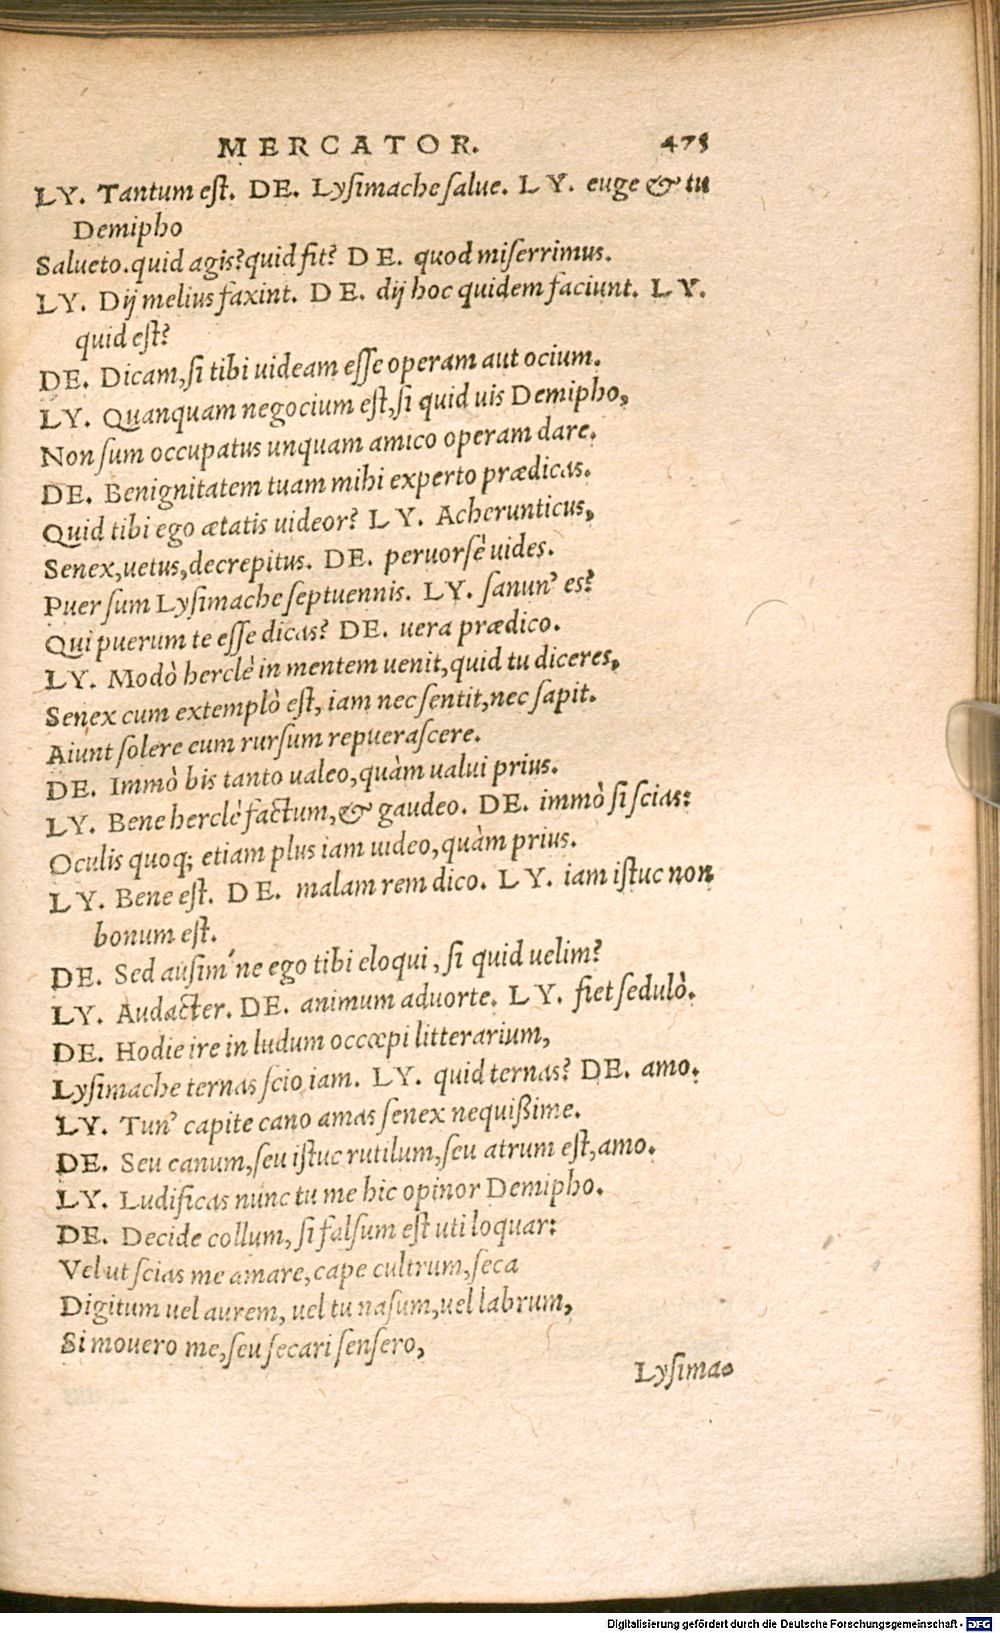 MERCATOR. 475
LY. Tantum eſt. DE. Lyſimache ſalue. LY. euge & tu
Demipho
Salueto. quid agis? quid fit? DE. quod miſerrimus.
LY. Dij melius faxint. DE. dij hoc quidem faciunt. LY.
quid eſt?
DE. Dicam, ſi tibi uideam eſſe operam aut ocium.
LY. Quanquam negocium eſt, ſi quid uis Demipho,
Non ſum occupatus unquam amico operam dare.
DE. Benignitatem tuam mihi experto prædicas.
Quid tibi ego ætatis uideor? LY. Acherunticus,
Senex, uetus, decrepitus. DE. peruorſè uides.
Puer ſum Lyſimache ſeptuennis. LY. ſanun' es?
Qui puerum te eſſe dicas? DE. uera prædico.
LY. Modò herclè in mentem uenit, quid tu diceres,
Senex cum extemplò eſt, iam nec ſentit, nec ſapit.
Aiunt ſolere eum rurſum repueraſcere.
DE. Immò bis tanto ualeo, quàm ualui prius.
LY. Bene herclè factum, & gaudeo. DE. immò ſi ſcias:
Oculis quoq; etiam plus iam uideo, quàm prius.
LY. Bene eſt. DE. malam rem dico. LY. iam iſtuc non
bonum eſt.
DE. Sed auſim'ne ego tibi eloqui, ſi quid uelim?
LY. Audacter. DE. animum aduorte. LY. fiet ſedulò.
DE. Hodie ire in ludum occœpi litterarium,
Lyſimache ternas ſcio iam. LY. quid ternas? DE. amo.
LY. Tun' capite cano amas ſenex nequißime.
DE. Seu canum, ſeu iſtuc rutilum, ſeu atrum eſt, amo.
LY. Ludificas nunc tu me hic opinor Demipho.
DE. Decide collum, ſi falſum eſt uti loquar:
Vel ut ſcias me amare, cape cultrum, ſeca
Digitum uel aurem, uel tu naſum, uel labrum,
Si mouero me, ſeu ſecari ſenſero,
Lyſima-
Digitalisierung gefördert durch die Deutsche Forschungsgemeinschaft - DFG